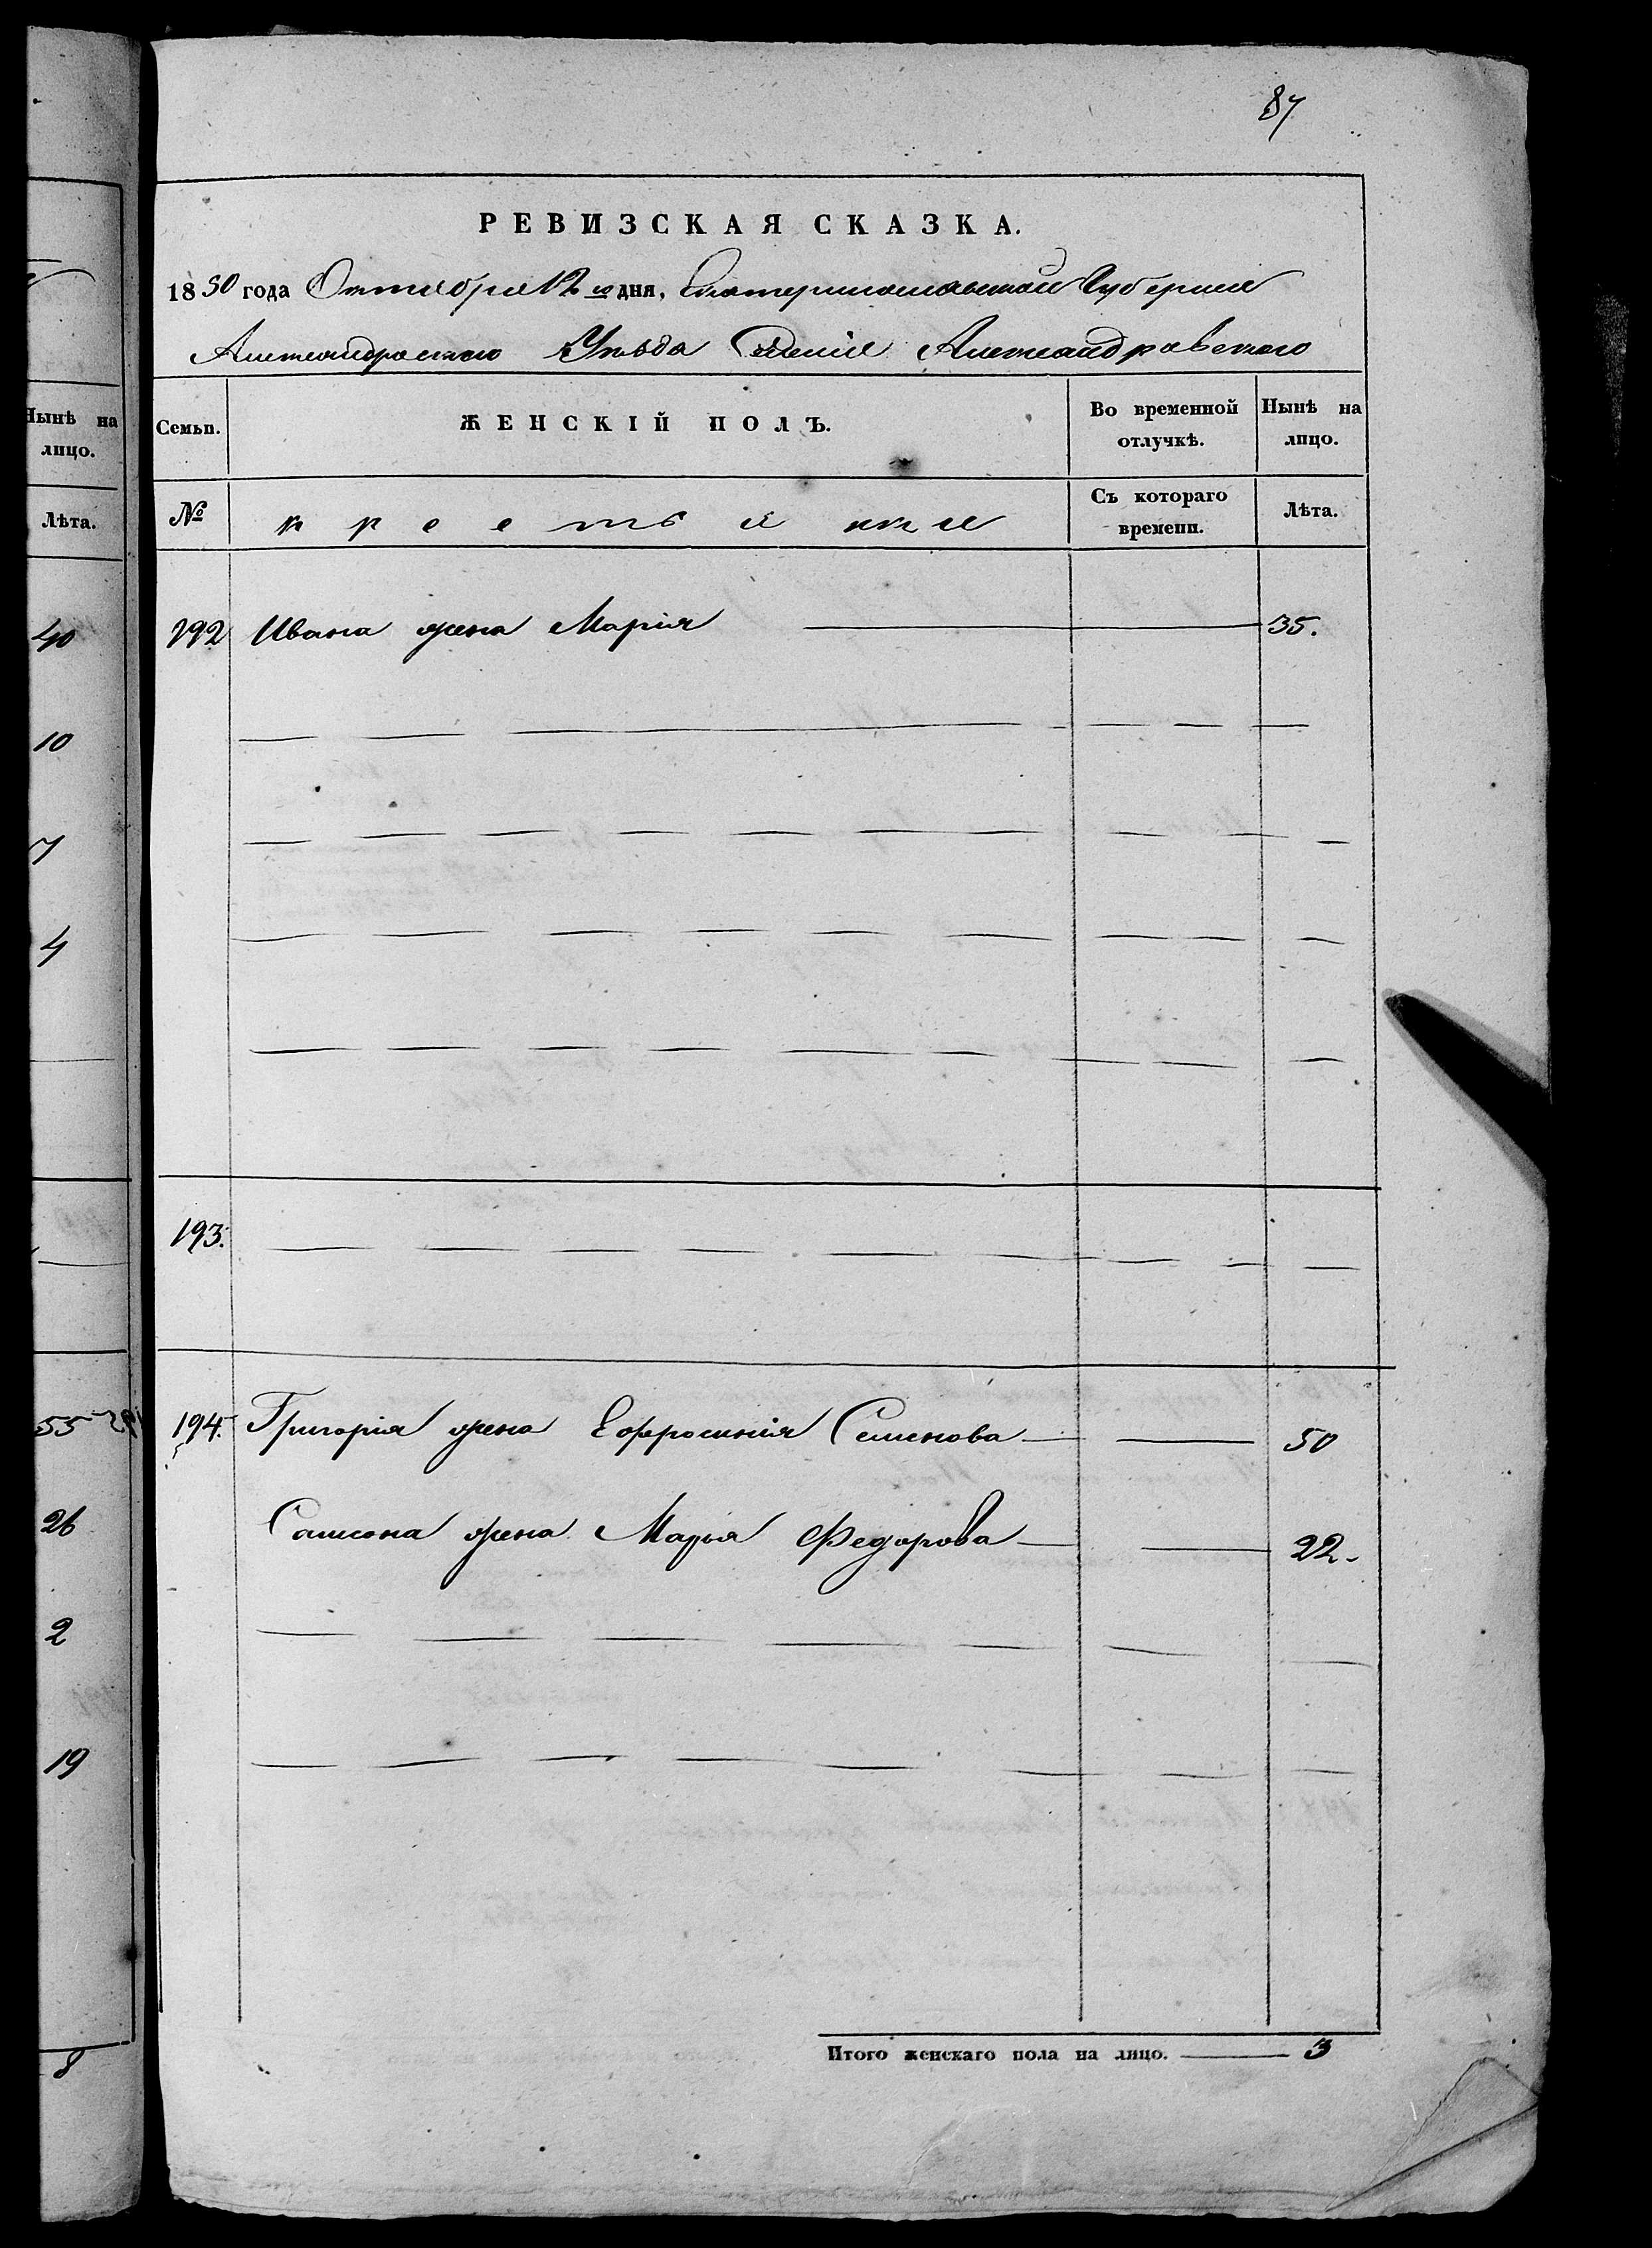 87
РЕВИЗСКАЯ СКАЗКА.
1850 года Октября 12 го дня, Екатеринославской Губернии
Александровского Уезда Селения Александровского
Нынѣ на лицо.
Лѣта.
40
10
7
4
55
26
2
19
8
Семьи. ЖЕНСКІЙ ПОЛЪ. Во временной отлучкѣ. Нынѣ на лицо.
№ крестьянки Съ котораго времени. Лѣта.
192 Ивана жена Марія 35.
193.
194. Григорія жена Ефросинія Семенова 50
Самсона жена Марья Федорова 22.
Итого женскаго пола на лицо. 3